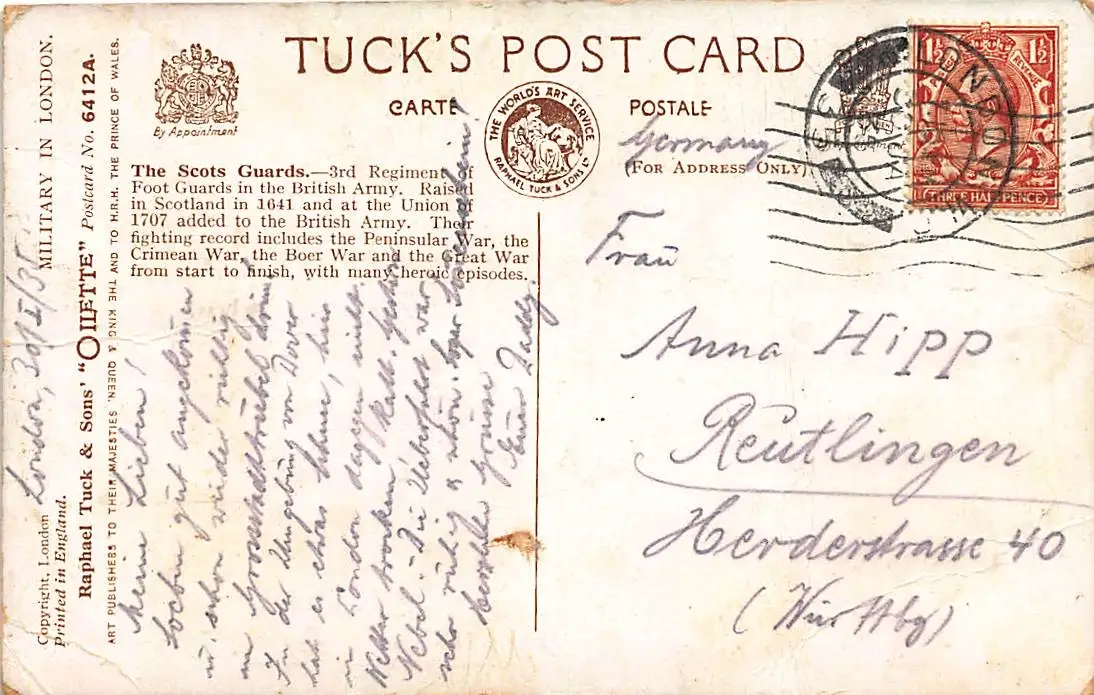 TUCK'S POST CARD
CARTE POSTALE
By Appointment
THE WORLD'S ART SERVICE
RAPHAEL TUCK & SONS LD
(FOR ADDRESS ONLY)
The Scots Guards.—3rd Regiment of
Foot Guards in the British Army. Raised
in Scotland in 1641 and at the Union of
1707 added to the British Army. Their
fighting record includes the Peninsular War, the
Crimean War, the Boer War and the Great War
from start to finish, with many heroic episodes.
Copyright, London
Printed in England.
MILITARY IN LONDON.
Raphael Tuck & Sons' "OILETTE" Postcard No. 6412A.
ART PUBLISHERS TO THEIR MAJESTIES THE KING & QUEEN, AND TO H.R.H. THE PRINCE OF WALES.
London, 30/I/35.
Meine Lieben!
Soeben gut angekommen
u. schon wieder
im Grossstadttrubel drin
In der Umgebung von Dover
hat es etwas Schnee, hier
in London dagegen nicht.
Wetter trocken, kalt,
Nebel. Die Ueberfahrt war
sehr ruhig u. schön, sogar Sonnenschein!
Herzliche Grüsse
Euer Daddy.
Germany
Frau
Anna Hipp
Reutlingen
Herderstrasse 40
(Württbg)
1½ 1½
REVENUE
THREE HALFPENCE
LONDON